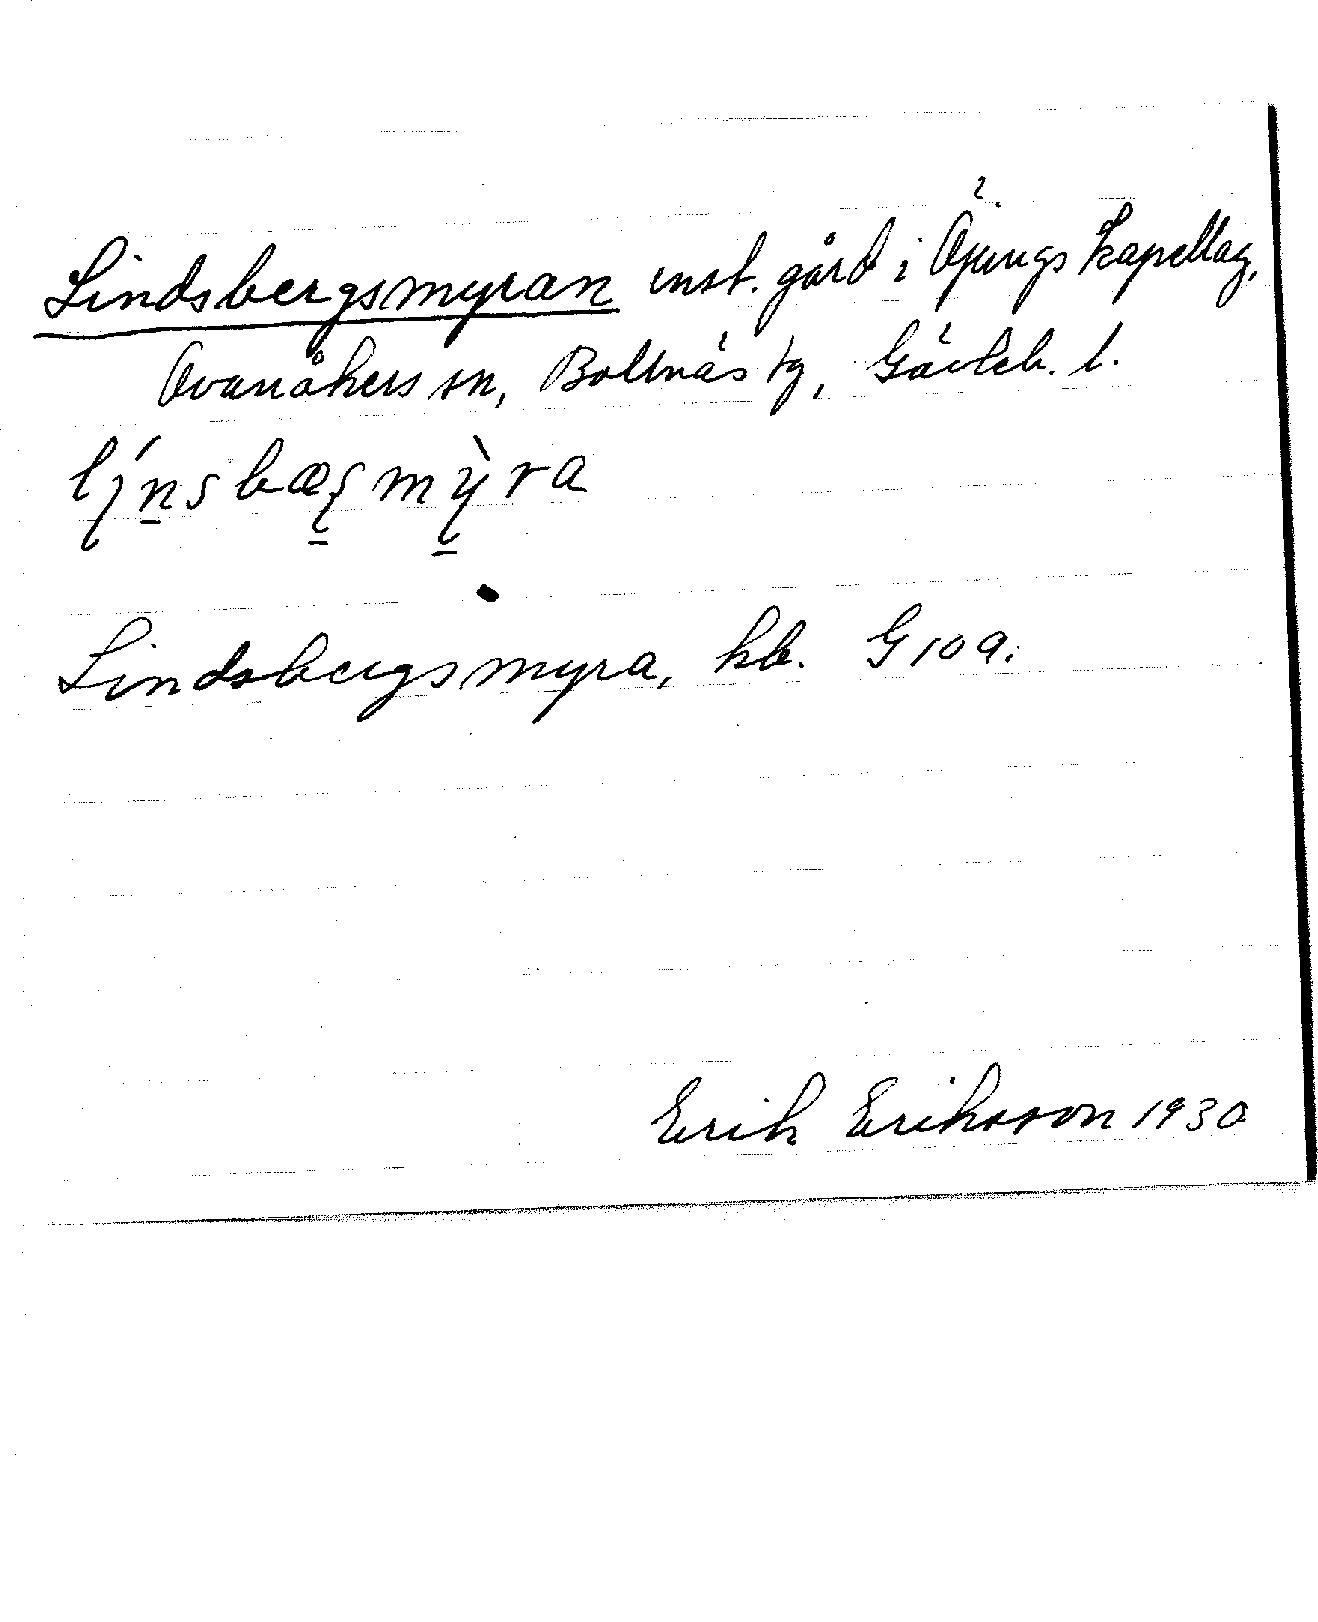 Lindsbergsmyran enst. gård i Öjungs kapellag,
Ovanåkers sn, Bollnäs tg, Gävleb. l.
Lindsbergsmyra, hb. G 10 a.
Erik Eriksson 1930